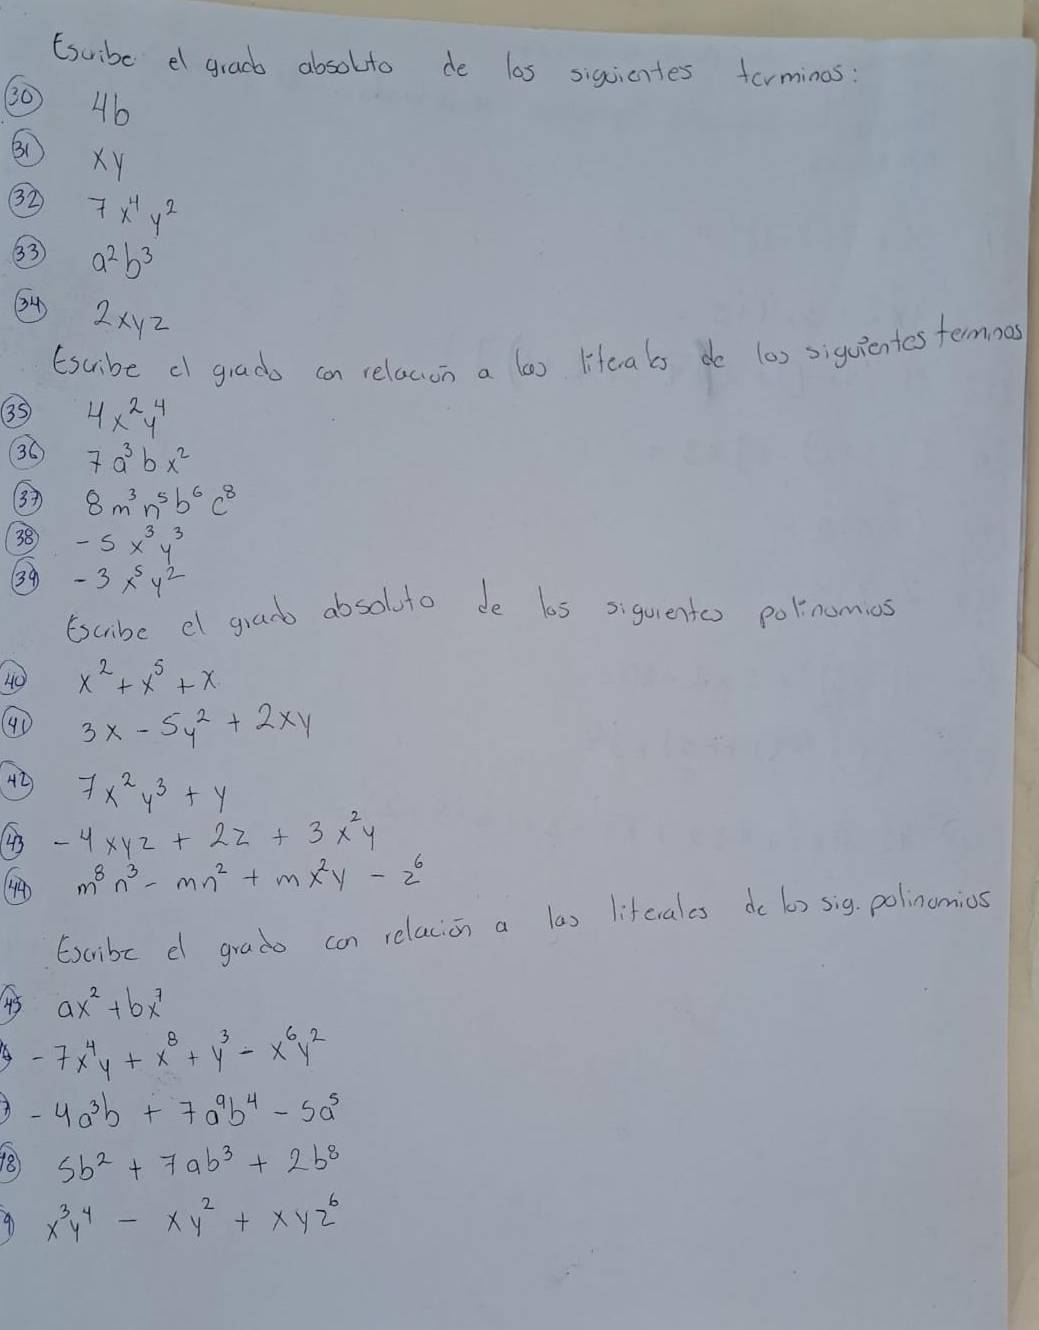 Escribe el grado absoluto de los siguientes terminos:
30 4b
31 xy
32 7x⁴y²
33 a²b³
34 2xyz
Escribe el grado con relación a las literales de los siguientes terminos
35 4x²y⁴
36 7a³bx²
37 8m³n⁵b⁶c⁸
38 -5x³y³
39 -3x⁵y²
Escribe el grado absoluto de los siguientes polinomios
40 x² + x⁵ + x
41 3x - 5y² + 2xy
42 7x²y³ + y
43 -4xyz + 2z + 3x²y
44 m⁸n³ - mn² + mx²y - z⁶
Escribe el grado con relación a las literales de los sig. polinomios
45 ax² + bx⁷
-7x⁴y + x⁸ + y³ - x⁶y²
7 -4a³b + 7a⁹b⁴ - 5a⁵
48 5b² + 7ab³ + 2b⁸
9 x³y⁴ - xy² + xyz⁶